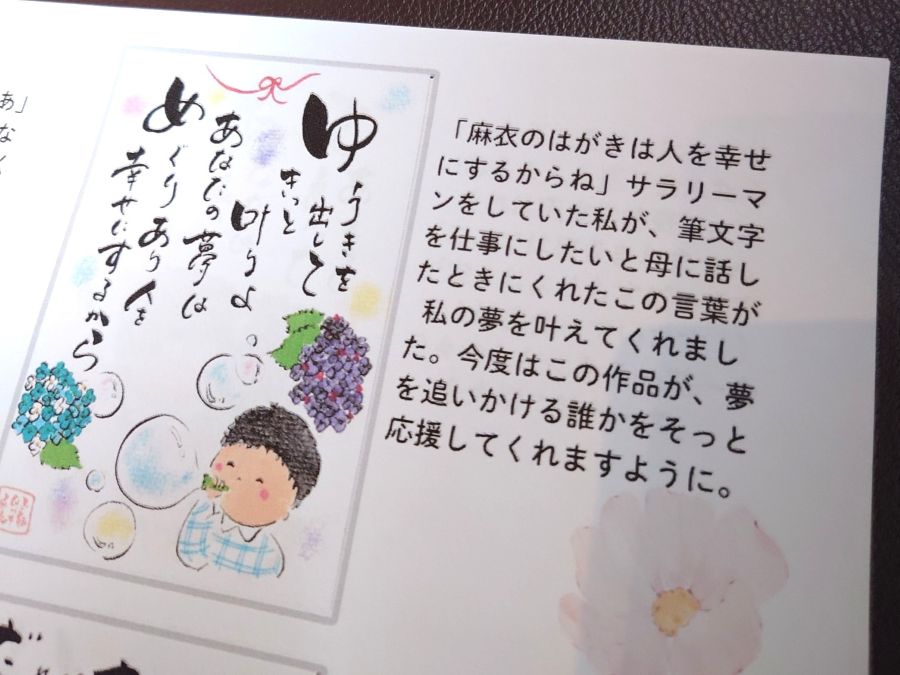 ゆうきを
出して
きっと
叶うよ
あなたの夢は
めぐりあう人を
幸せにするから
「麻衣のはがきは人を幸せ
にするからね」サラリーマ
ンをしていた私が、筆文字
を仕事にしたいと母に話し
たときにくれたこの言葉が
私の夢を叶えてくれまし
た。今度はこの作品が、夢
を追いかける誰かをそっと
応援してくれますように。
あ」
な